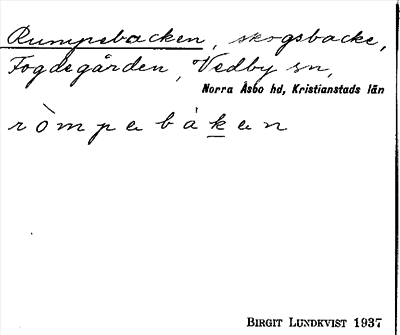 Rumpebacken, skogsbacke,
Fogdegården, Vedby sn,
Norra Åsbo hd, Kristianstads län
ròmpebàken
BIRGIT LUNDKVIST 1937